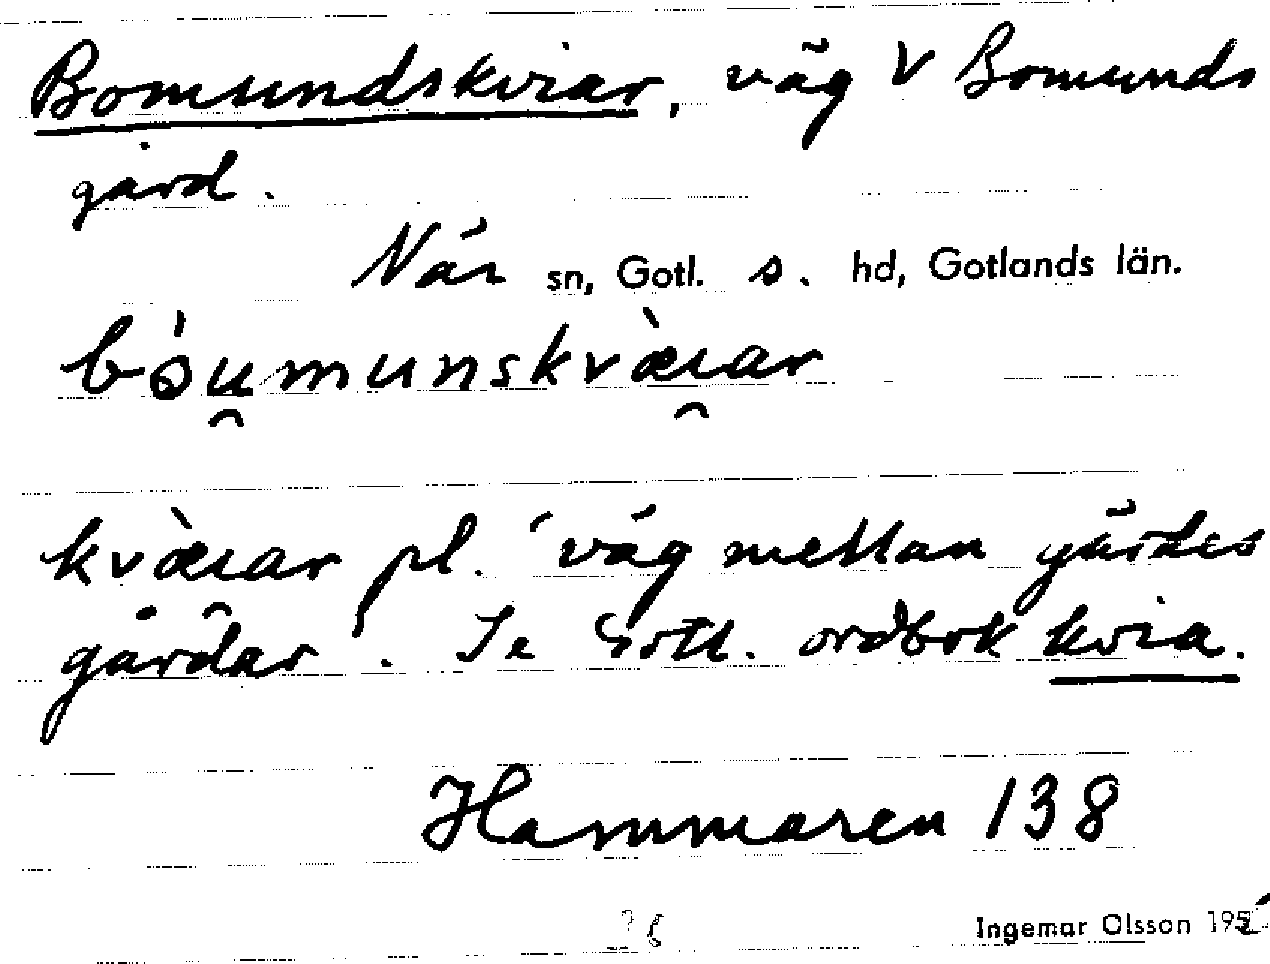 Bomundskviar, väg V Bomunds
gård.
När sn, Gotl. s. hd, Gotlands län.
bóu̯munskvæ̀ɪ̯ar
kvæ̀ɪar pl. 'väg mellan gärdes
gårdar'. Se Gotl. ordbok kvia.
Hammaren 138
Ingemar Olsson